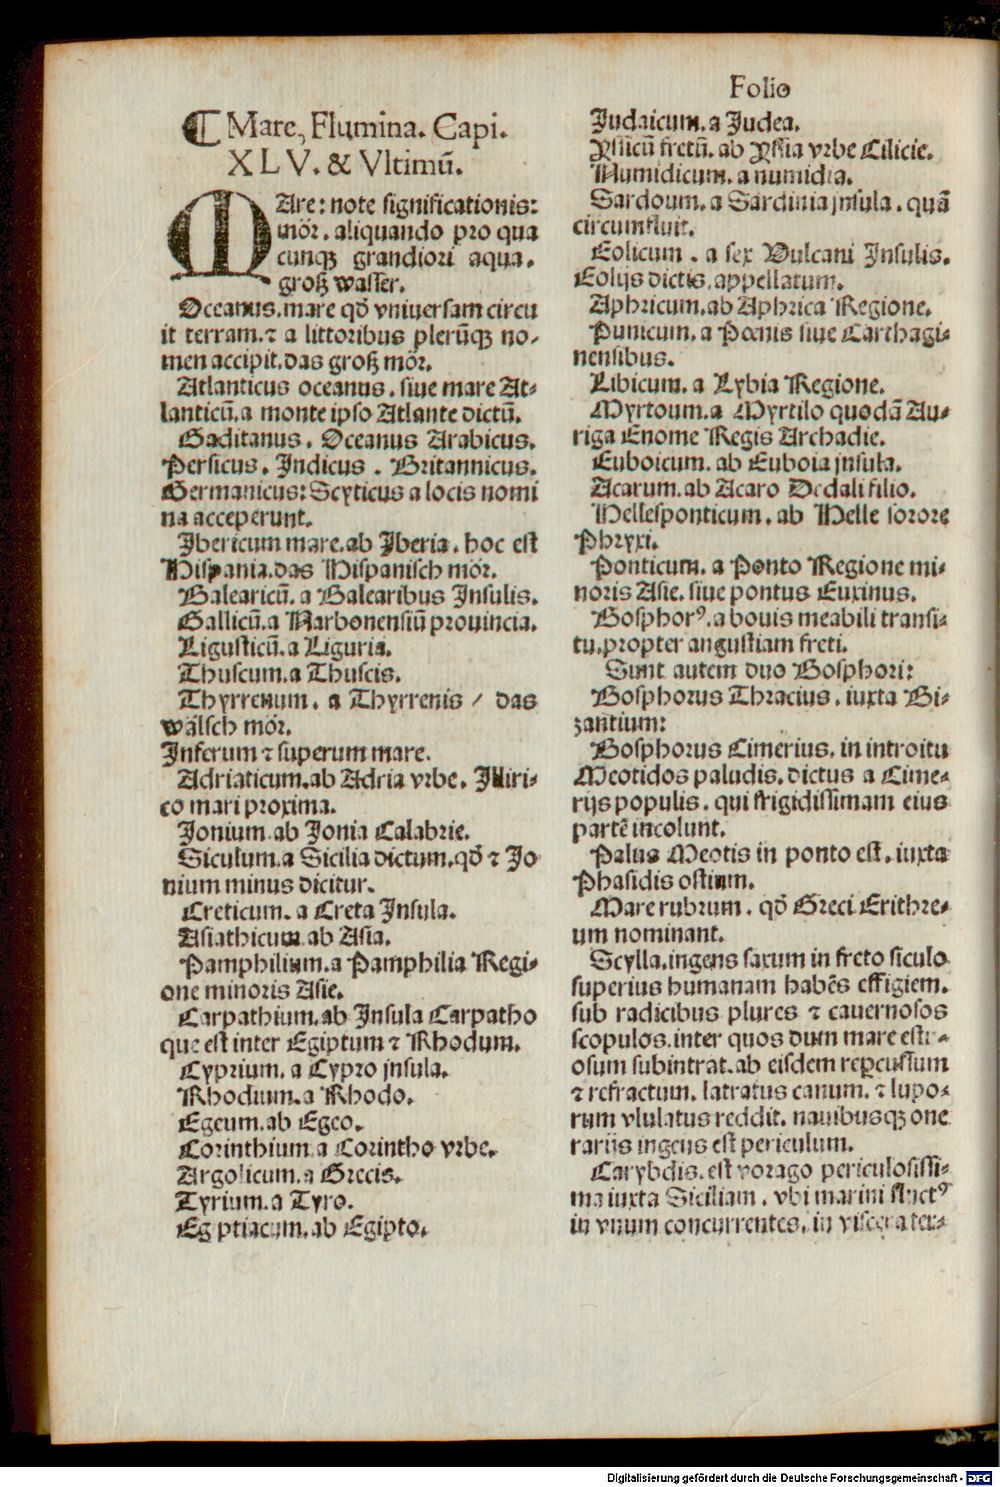 Folio
¶ Mare, Flumina. Capi.
XLV. & Vltimū.
MAre: note significationis:
mör. aliquando pro qua
cunqꝫ grandiori aqua.
groß wasser.
Oceanus. mare qđ vniuersam circu
it terram. ⁊ a littoribus plerūqꝫ no/
men accipit. das groß mör.
Atlanticus oceanus. siue mare At⸗
lanticū. a monte ipso Atlante dictū.
Gaditanus. Oceanus Arabicus.
Persicus. Indicus. Britannicus.
Germanicus: Scyticus a locis nomi
na acceperunt.
Ibericum mare. ab Iberia. hoc est
Hispania. das Hispanisch mör.
Balearicū. a Balearibus Insulis.
Gallicū. a Narbonensiū prouincia.
Ligusticū. a Liguria.
Thuscum. a Thuscis.
Thyrrenum. a Thyrrenis / das
wälsch mör.
Inferum ⁊ superum mare.
Adriaticum. ab Adria vrbe. Illiri⸗
co mari proxima.
Ionium. ab Ionia Calabrie.
Siculum. a Sicilia dictum. qđ ⁊ Io
nium minus dicitur.
Creticum. a Creta Insula.
Asiathicum. ab Asia.
Pamphilium. a Pamphilia Regi⸗
one minoris Asie.
Carpathium. ab Insula Carpatho
que est inter Egiptum ⁊ Rhodum.
Cyprium. a Cypro insula.
Rhodium. a Rhodo.
Egeum. ab Egeo.
Corinthium. a Corintho vrbe.
Argolicum. a Grecis.
Tyrium. a Tyro.
Egiptiacum. ab Egipto.
Iudaicum. a Iudea.
Yssicū fretū. ab Yssia vrbe Cilicie.
Numidicum. a numidia.
Sardoum. a Sardinia insula. quā
circumfluit.
Eolicum. a sex Vulcani Insulis.
Eolijs dictis. appellatum.
Aphricum. ab Aphrica Regione.
Punicum. a Poenis siue Carthagi⸗
nensibus.
Libicum. a Lybia Regione.
Myrtoum. a Myrtilo quodā Au⸗
riga Enome Regis Archadie.
Euboicum. ab Euboia insula.
Acarum. ab Acaro Dedali filio.
Hellesponticum. ab Helle sorore
Phryxi.
Ponticum. a Ponto Regione mi⸗
noris Asie. siue pontus Euxinus.
Bosphorꝰ. a bouis meabili transi⸗
tu. propter angustiam freti.
Sunt autem duo Bosphori:
Bosphorus Thracius. iuxta Bi⸗
zantium:
Bosphorus Cimerius. in introitu
Meotidos paludis. dictus a Cime⸗
rijs populis. qui frigidissimam eius
partē incolunt.
Palus Meotis in ponto est. iuxta
Phasidis ostium.
Mare rubrum. qđ Greci Erithre⸗
um nominant.
Scylla. ingens saxum in freto siculo
superius humanam habēs effigiem.
sub radicibus plures ⁊ cauernosos
scopulos. inter quos dum mare estu⸗
osum subintrat. ab eisdem reꝑcussum
⁊ refractum. latratus canum. ⁊ lupo⸗
rum vlulatus reddit. nauibusqꝫ one
rarijs ingens est periculum.
Carybdis. est vorago periculosissi⸗
ma iuxta Siciliam. vbi marini fluctꝰ
in vnum concurrentes. in viscera ter⸗
Digitalisierung gefördert durch die Deutsche Forschungsgemeinschaft - DFG